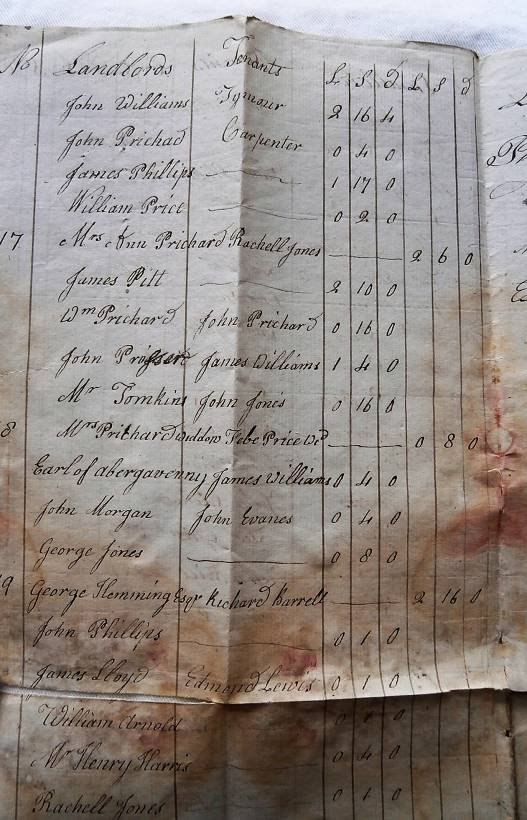 No Landlords Tenants L S D L S D
John Williams Seymour 2 16 4
John Prichad Carpenter 0 4 0
James Phillips 1 17 0
William Price 0 2 0
17 Mrs Ann Prichard Rachell Jones 2 6 0
James Pitt 2 10 0
Wm Prichard John Prichard 0 16 0
John Prosser James Williams 1 4 0
Mr Tomkins John Jones 0 16 0
8 Mrs Prichard widdow Febe Price Wd 0 8 0
Earl of Abergavenny James Williams 0 4 0
John Morgan John Evanes 0 4 0
George Jones 0 8 0
19 George Hemming Esqr Richard Barrell 2 16 0
John Phillips 0 1 0
James Lloyd Edmond Lewis 0 1 0
William Arnold 0 0
Mr Henry Harris 0 4 0
Rachell Jones 0 1 0